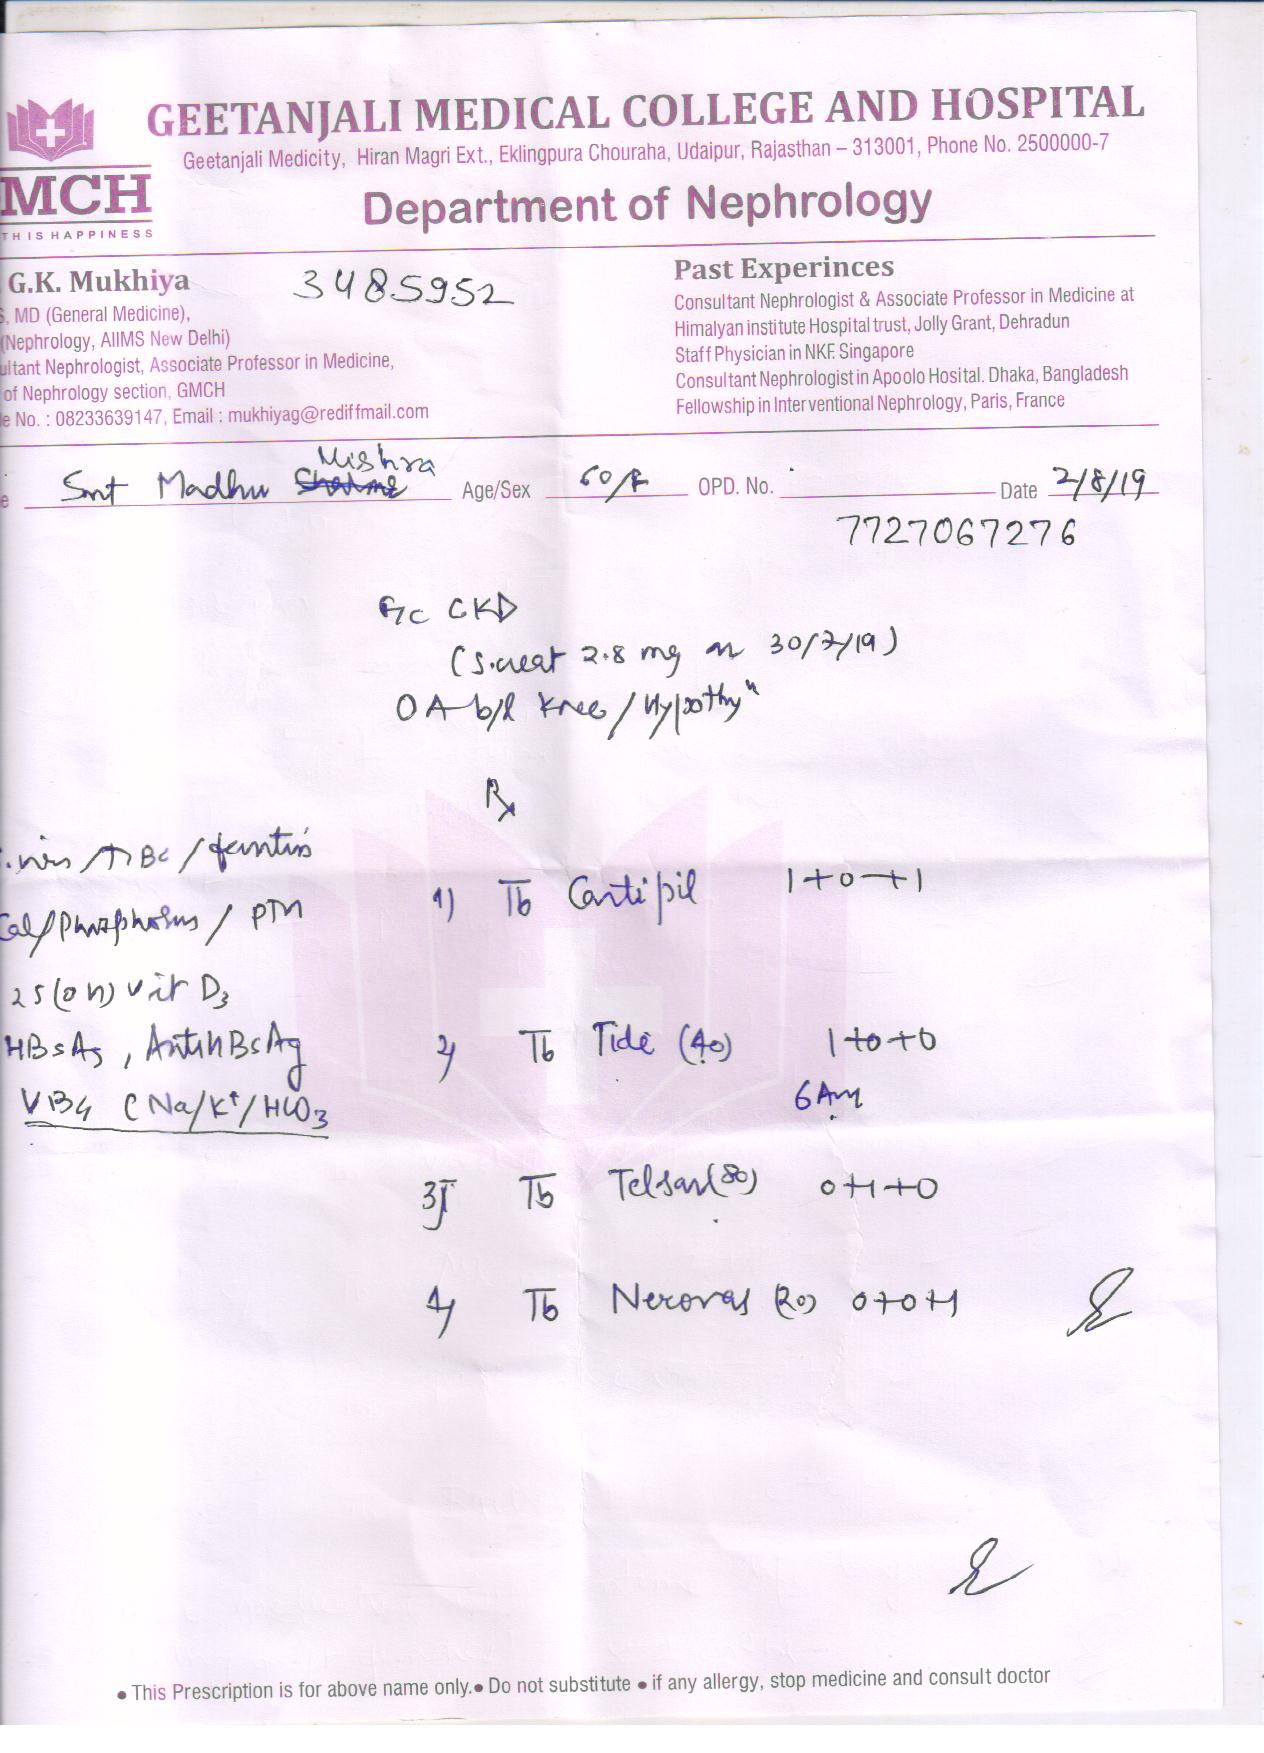 GEETANJALI MEDICAL COLLEGE AND HOSPITAL
Geetanjali Medicity, Hiran Magri Ext., Eklingpura Chouraha, Udaipur, Rajasthan – 313001, Phone No. 2500000-7
MCH
TH IS HAPPINESS
Department of Nephrology
G.K. Mukhiya
3485952
S, MD (General Medicine),
(Nephrology, AIIMS New Delhi)
ultant Nephrologist, Associate Professor in Medicine,
of Nephrology section, GMCH
e No. : 08233639147, Email : mukhiyag@rediffmail.com
Past Experinces
Consultant Nephrologist & Associate Professor in Medicine at
Himalyan institute Hospital trust, Jolly Grant, Dehradun
Staff Physician in NKF. Singapore
Consultant Nephrologist in Apoolo Hosital. Dhaka, Bangladesh
Fellowship in Interventional Nephrology, Paris, France
e Smt Madhu Mishra Age/Sex 60/F OPD. No. Date 2/8/19
7727067276
CKD
(S.creat 2.8 mg on 30/7/19)
OA b/l knee / Hypothyⁿ
Rx
TIBC /
Cal/Phosphorus / PTH
25(OH) Vit D3
HBsAg, AntiHBsAg
VBG (Na/K+/HCO3
1) Tb 1+0+1
2) Tb Tide (40) 1+0+0
6Am
3) Tb Telsar (80) 0+1+0
4) Tb (20) 0+0+1
• This Prescription is for above name only. • Do not substitute • if any allergy, stop medicine and consult doctor